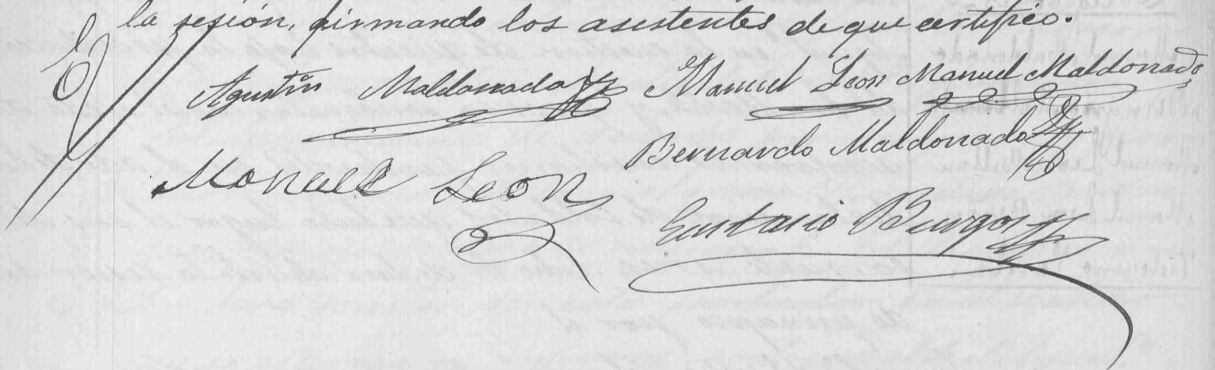 la sesión, firmando los asistentes de que certifico.
Agustín Maldonado Manuel Leon Manuel Maldonado
Bernardo Maldonado
Manuel Leon
Eustasio Burgos